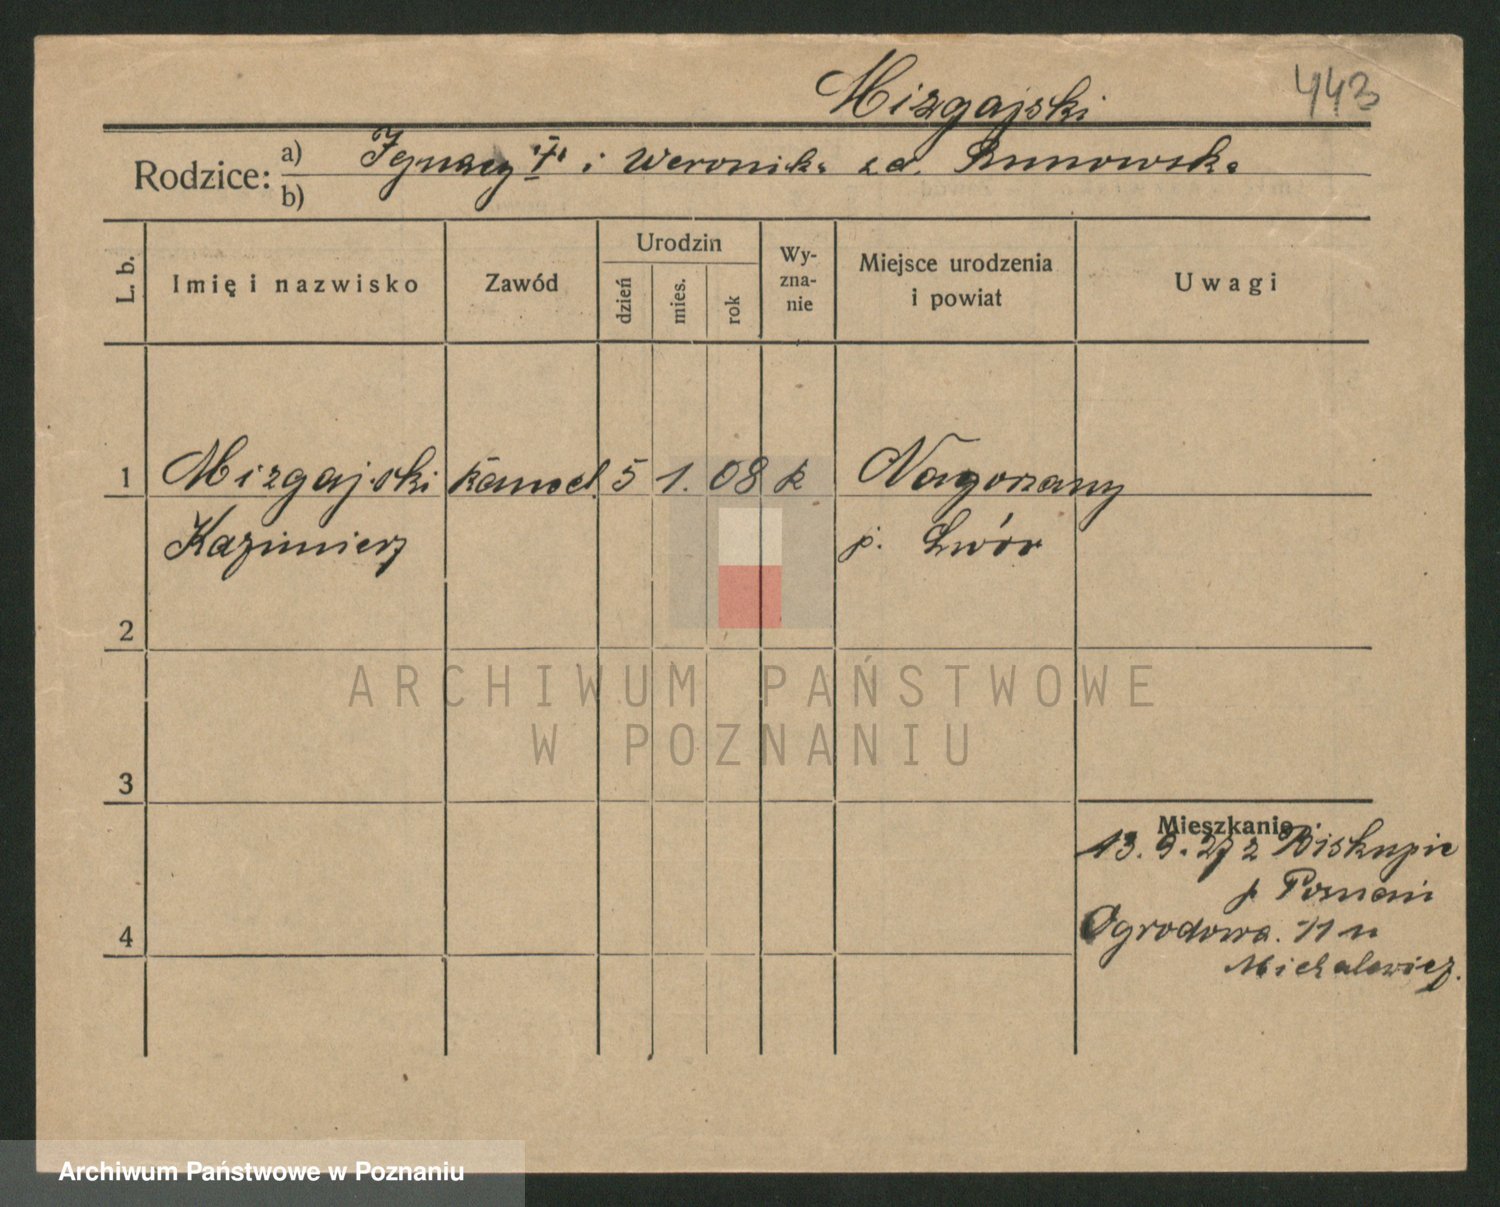 Mizgajski 443
Rodzice: a) Ignacy i Weronika z d.
b)
L. b. Imię i nazwisko Zawód Urodzin dzień mies. rok Wy-zna-nie Miejsce urodzenia i powiat Uwagi
1 Mizgajski 5 1. 08 k Nagorzany
Kazimierz p. Lwów
2
3
Mieszkanie
13. 9. 27 z Biskupic
p Poznań
4 Ogrodowa. 11 u
Michalewicz.
ARCHIWUM PAŃSTWOWE
W POZNANIU
Archiwum Państwowe w Poznaniu